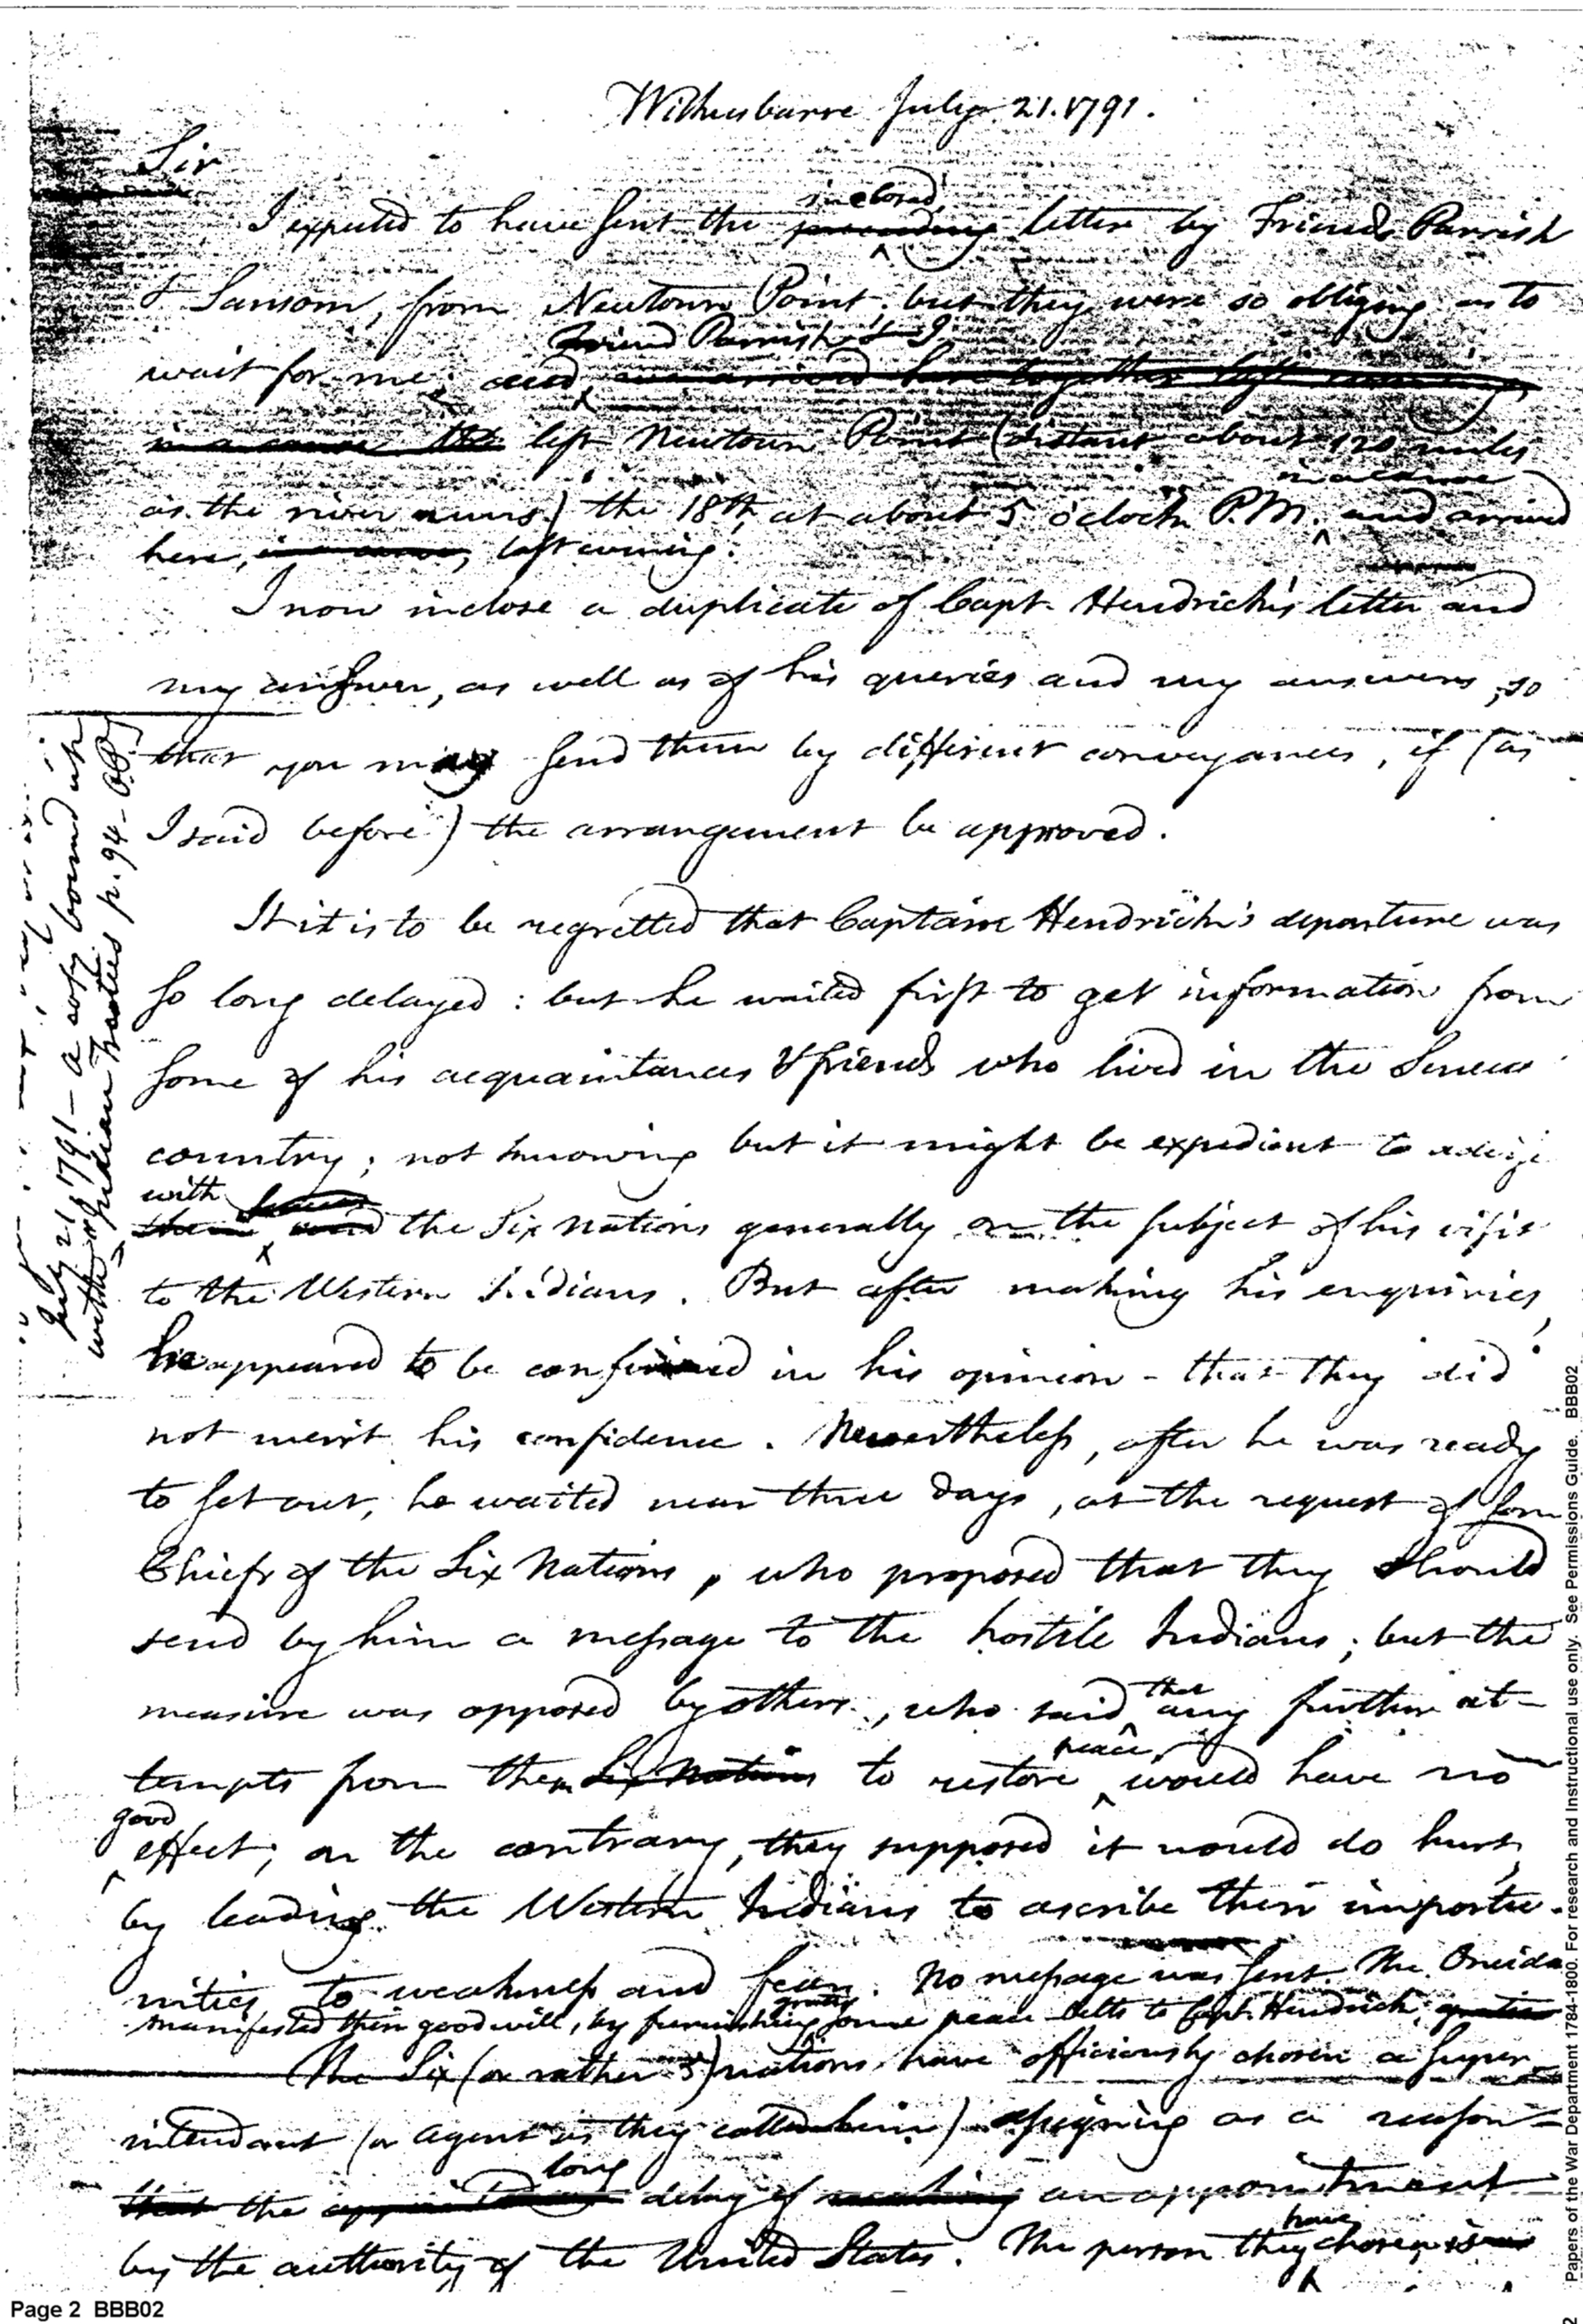 Wilkesbarre July 21. 1791.
Sir
inclosed
I expected to have sent the preceeding letter by Friends Parrish
& Sansom, from Newtown Point; but they were so obliging as to
Friend Parrish & I
wait for me; and, we arrived here together last evening,
in a canoe left Newtown Point (distant about 120 miles
in a canoe
as the river runs) the 18th, at about 5 o'clock P.M. and arrived
here, in a canoe, last evening.
I now inclose a duplicate of Capt. Hendrick's letter and
my answer, as well as of his queries and my answers, so
that you may send them by different conveyances, if (as
I said before) the arrangement be approved.
It it is to be regretted that Captain Hendrick's departure was
so long delayed: but he waited first to get information from
some of his acquaintances & friends who lived in the Seneca
country; not knowing but it might be expedient to advise
with
them and the Six Nations generally on the subject of his visit
to the Western Indians. But after making his enquiries,
he appeared to be confirmed in his opinion - that they did
not merit his confidence. Nevertheless, after he was ready
to set out, he waited near three days, at the request of some
Chiefs of the Six Nations, who proposed that they should
send by him a message to the hostile Indians; but the
measure was opposed by others, who said any further at-
that
tempts from them Six Nations to restore would have no
peace,
good
effect; on the contrary, they supposed it would do hurt,
by leading the Western Indians to ascribe their importu-
nities to weakness and fear. No message was sent. The Oneida
manifested their good will, by furnishing some peace belts to Capt. Hendrick,
gratis
The Six (or rather 5) nations have officiously chosen a Super-
intendant (or agent as they called him) assigning as a reason
long
that the delay of making an appointment
by the authority of the United States. The person they chosen is
have
July 21 1791 - a copy bound up
with Indian treaties p. 94 -
Page 2 BBB02
Papers of the War Department 1784-1800. For research and Instructional use only. See Permissions Guide. BBB02